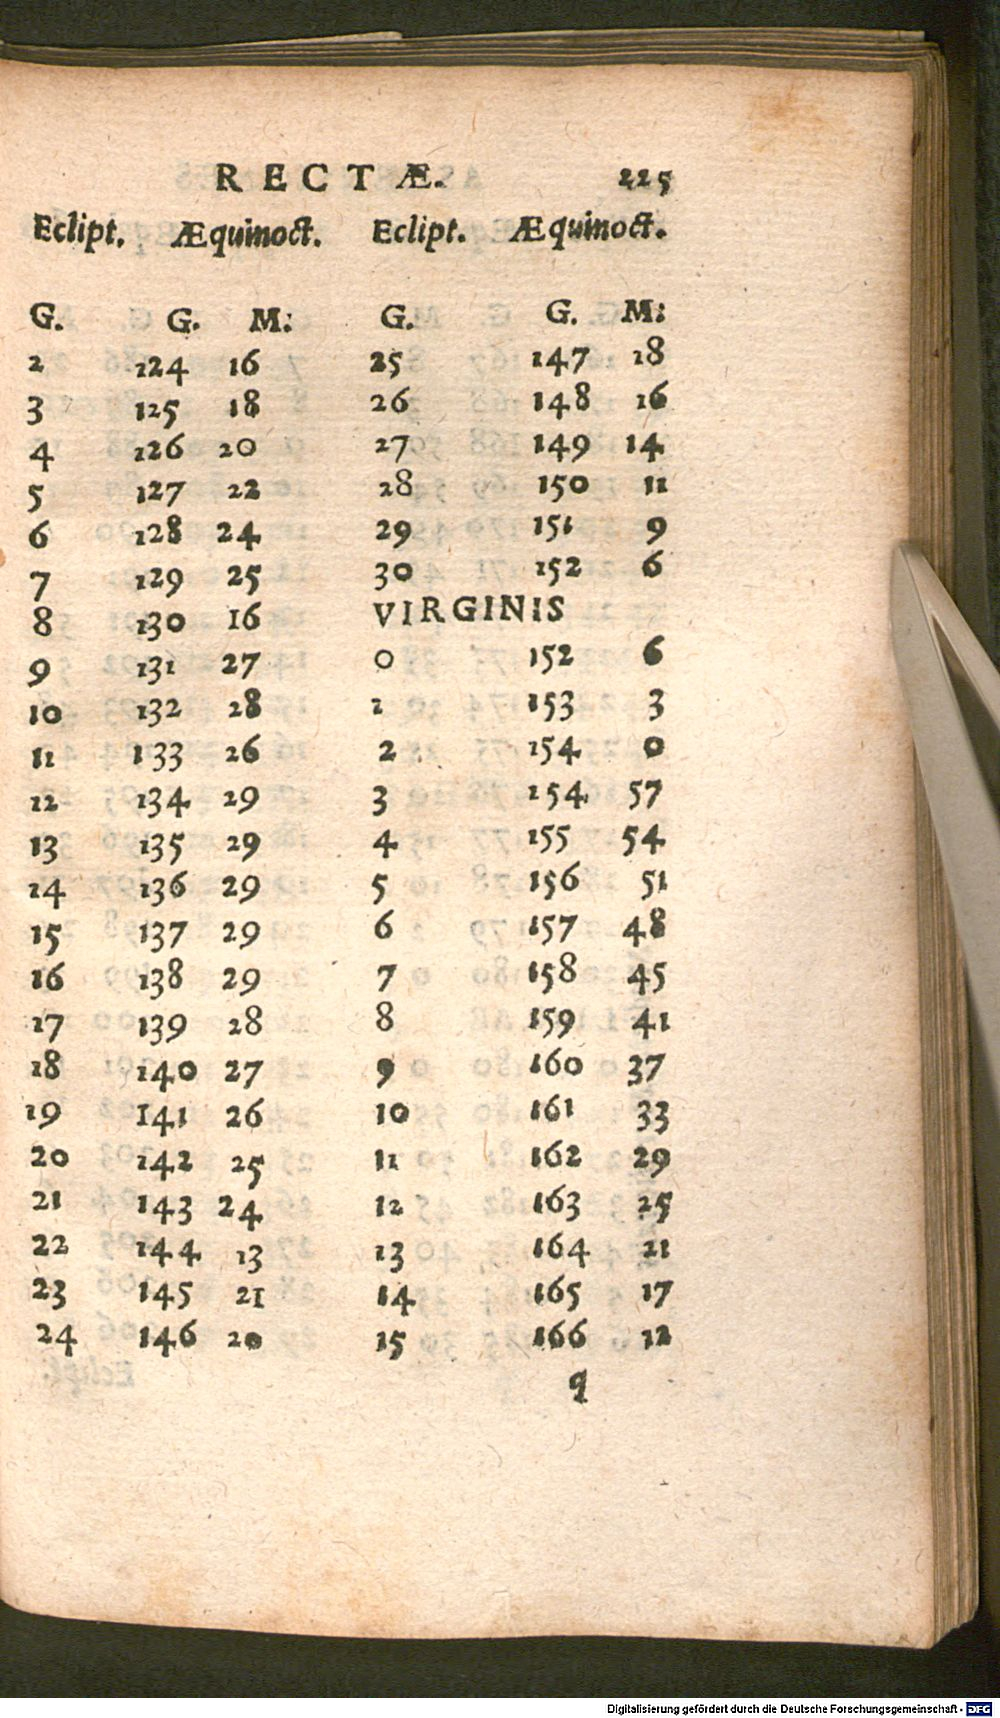 RECTÆ. 225
Eclipt. Æquinoct. Eclipt. Æquinoct.
G. G. M: G. G. M:
2 124 16 25 147 18
3 125 18 26 148 16
4 126 20 27 149 14
5 127 22 28 150 11
6 128 24 29 151 9
7 129 25 30 152 6
8 130 16 VIRGINIS
9 131 27 0 152 6
10 132 28 1 153 3
11 133 26 2 154 0
12 134 29 3 154 57
13 135 29 4 155 54
14 136 29 5 156 51
15 137 29 6 157 48
16 138 29 7 158 45
17 139 28 8 159 41
18 140 27 9 160 37
19 141 26 10 161 33
20 142 25 11 162 29
21 143 24 12 163 25
22 144 13 13 164 21
23 145 21 14 165 17
24 146 20 15 166 12
q
Digitalisierung gefördert durch die Deutsche Forschungsgemeinschaft - DFG